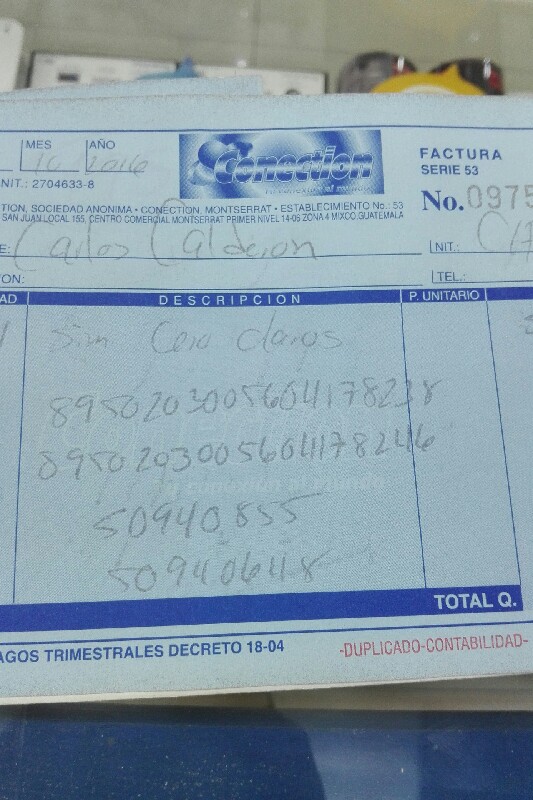 MES AÑO
10 2016
NIT.: 2704633-8
Conection
FACTURA
SERIE 53
No. 0975
TION, SOCIEDAD ANONIMA • CONECTION, MONTSERRAT • ESTABLECIMIENTO No.: 53
SAN JUAN LOCAL 155, CENTRO COMERCIAL MONTSERRAT PRIMER NIVEL 14-06 ZONA 4 MIXCO, GUATEMALA
E: Carlos Calderon NIT.: C/F
ON: TEL.:
AD DESCRIPCION P. UNITARIO
Sim Cero claros
8950203005604178238
8950203005604178246
50940855
50940648
TOTAL Q.
AGOS TRIMESTRALES DECRETO 18-04
-DUPLICADO-CONTABILIDAD-